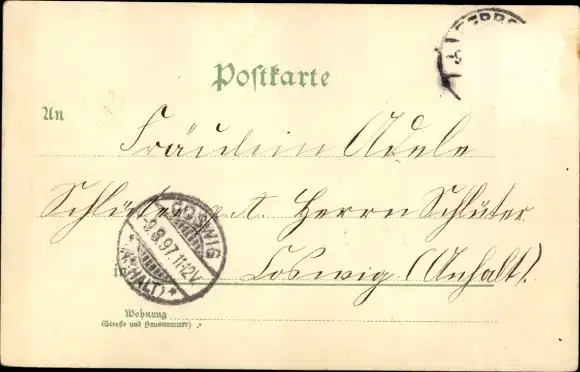 Postkarte
An
Fräulein Adele
Schlüter p. A. Herrn Schlüter
in
Coswig (Anhalt).
COSWIG
-9.8.97. 11-12V
* (ANHALT) *
Wohnung
(Straße und Hausnummer)